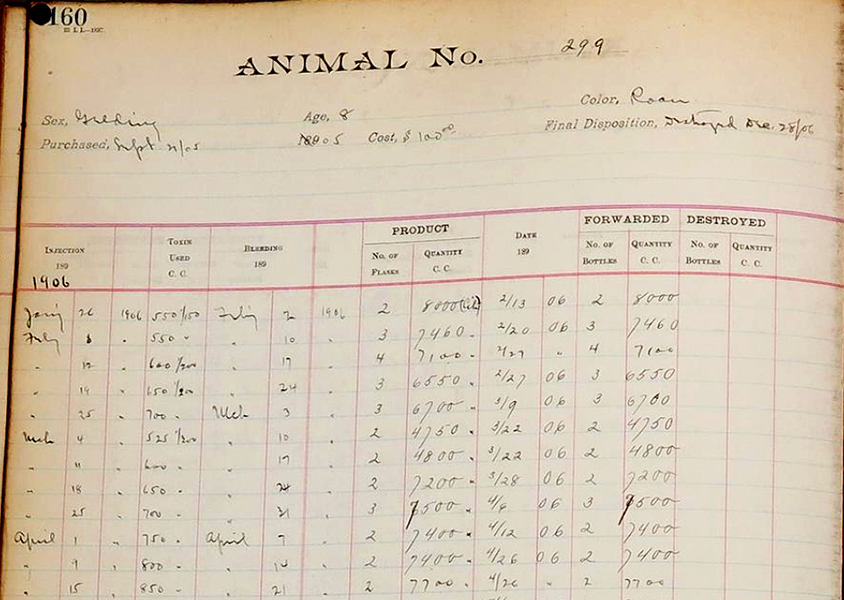 160
ANIMAL No. 299
Sex, Gelding Age, 8 Color, Roan
Purchased, Sept 21/05 18905 Cost, $ 100.00 Final Disposition, Destroyed Dec. 28/06
PRODUCT FORWARDED DESTROYED
INJECTION 189 TOXIN USED C. C. BLEEDING 189 No. OF FLASKS QUANTITY C. C. DATE 189 No. OF BOTTLES QUANTITY C. C. No. OF BOTTLES QUANTITY C. C.
1906
26 1906 550/150 2 1906 2 8000 2/13 06 2 8000
550 " 10 " 3 7460 " 2/20 06 3 7460
" 12 " 600/200 " 17 " 4 7100 " 2/27 " 4 7100
" 19 " 650/200 " 24 " 3 6550 " 2/27 06 3 6550
" 25 " 700 " Mch 3 " 3 6700 " 3/9 06 3 6700
Mch 4 " 525/200 " 10 " 2 4750 " 3/22 06 2 4750
" 11 " 600 " " 17 " 2 4800 " 3/22 06 2 4800
" 18 " 650 " " 24 " 2 7200 " 3/28 06 2 7200
" 25 " 700 " " 31 " 3 7500 " 06 3 7500
April 1 " 750 " April 7 " 2 7400 " 4/12 06 2 7400
" 9 " 800 " " 14 " 2 7400 " 4/26 06 2 7400
" 15 " 850 " " 21 " 2 7700 " 4/26 " 2 7700